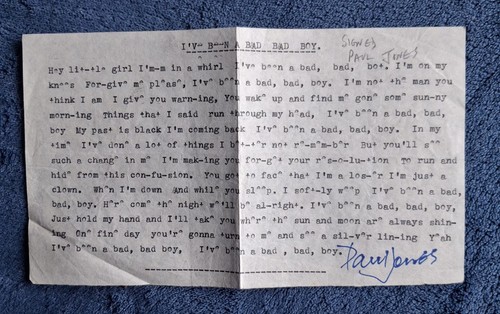 I'V^ B^^N A BAD BAD BOY.
SIGNED
PAUL JONES
H^y lit-tl^ girl I'm-m in a whirl I'v^ b^^n a bad, bad, bot. I'm on my
kn^^s For-giv^ m^ pl^as^, I'v^ b^^n a bad, bad, boy. I'm not th^ man you
think I am I giv^ you warn-ing, You wak^ up and find m^ gon^ som^ sun-ny
morn-ing Things that I said run through my h^ad, I'v^ b^^n a bad, bad,
boy My past is black I'm coming back I'v^ b^^n a bad, bad, boy. In my
tim^ I'v^ don^ a lot of things I b^t-t^r not r^-m^m-b^r But you'll s^^
such a chang^ in m^ I'm mak-ing you for-g^t your r^s-o-lu-tion To run and
hid^ from this con-fu-sion. You got to fac^ that I'm a los-^r I'm just a
clown. Wh^n I'm down And whil^ you sl^^p. I sof-tly w^^p I'v^ b^^n a bad,
bad, boy. H^r^ com^ th^ night w^'ll b^ al-right. I'v^ b^^n a bad, bad, boy,
Just hold my hand and I'll tak^ you wh^r^ th^ sun and moon ar^ always shin-
ing On^ fin^ day you'r^ gonna turn to m^ and s^^ a sil-v^r lin-ing Y^ah
I'v^ b^^n a bad, bad boy, I'v^ b^^n a bad , bad, boy.
Paul Jones